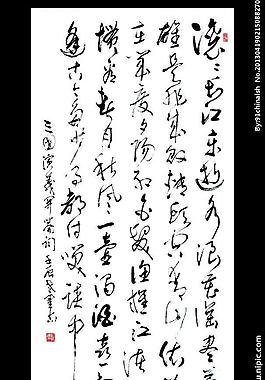 滚滚长江东逝水浪花淘尽英
雄是非成败转头空青山依旧
在几度夕阳红白发渔樵江渚
惯看春月秋风一壶浊酒喜相
逢古今多少事都付笑谈中
三国演义开卷词
By:91chinaish No:2013041902150882700
nipic.com